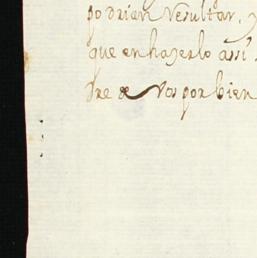 podrian Resultar, y
que en hazerlo assi
dre de Vos por bien